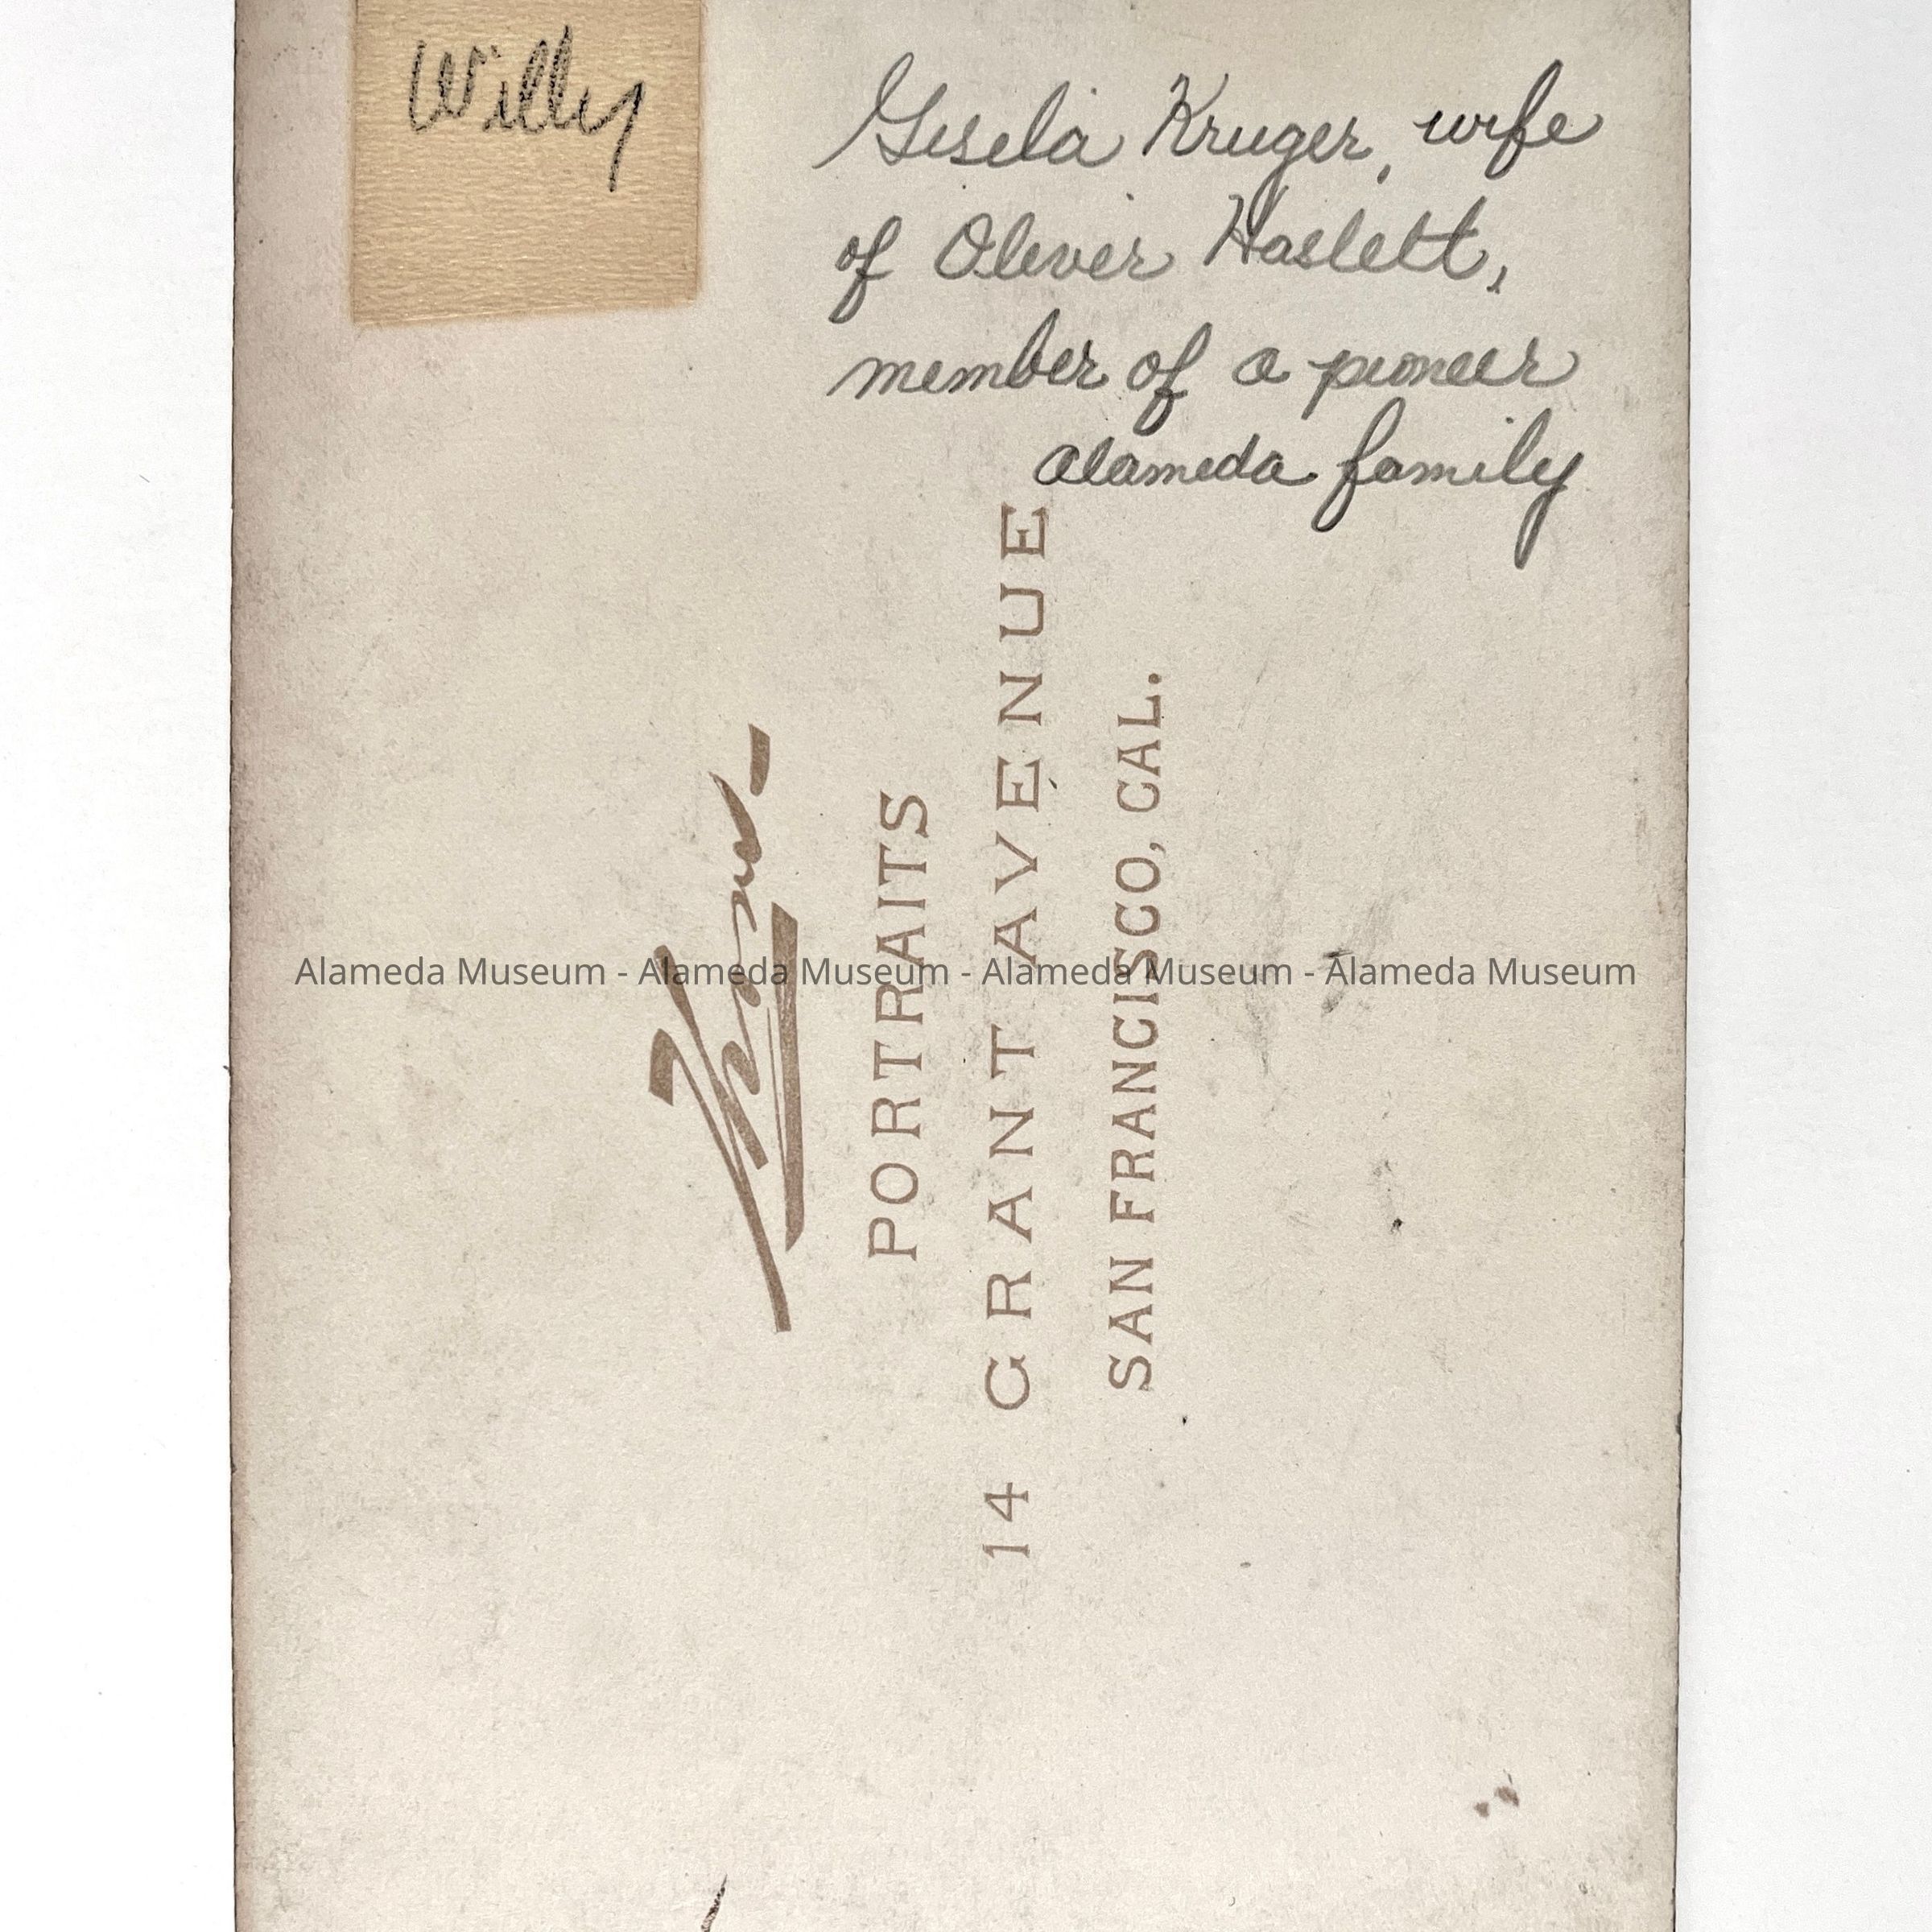 Willy
Gisela Kruger, wife
of Oliver Haslett,
member of a pioneer
Alameda family
PORTRAITS
14 GRANT AVENUE
SAN FRANCISCO, CAL.
Alameda Museum - Alameda Museum - Alameda Museum - Alameda Museum